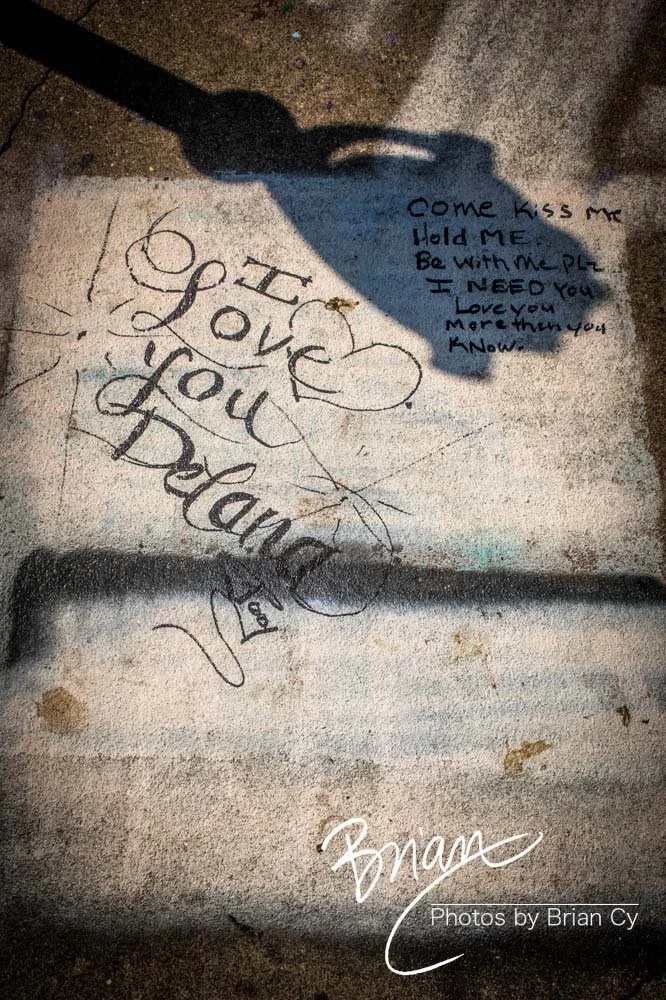 I
Love
You
Delana
Come Kiss Me
Hold ME.
Be With Me PLz
I NEED You
Love you
More then you
KNow.
Brian
Photos by Brian Cy